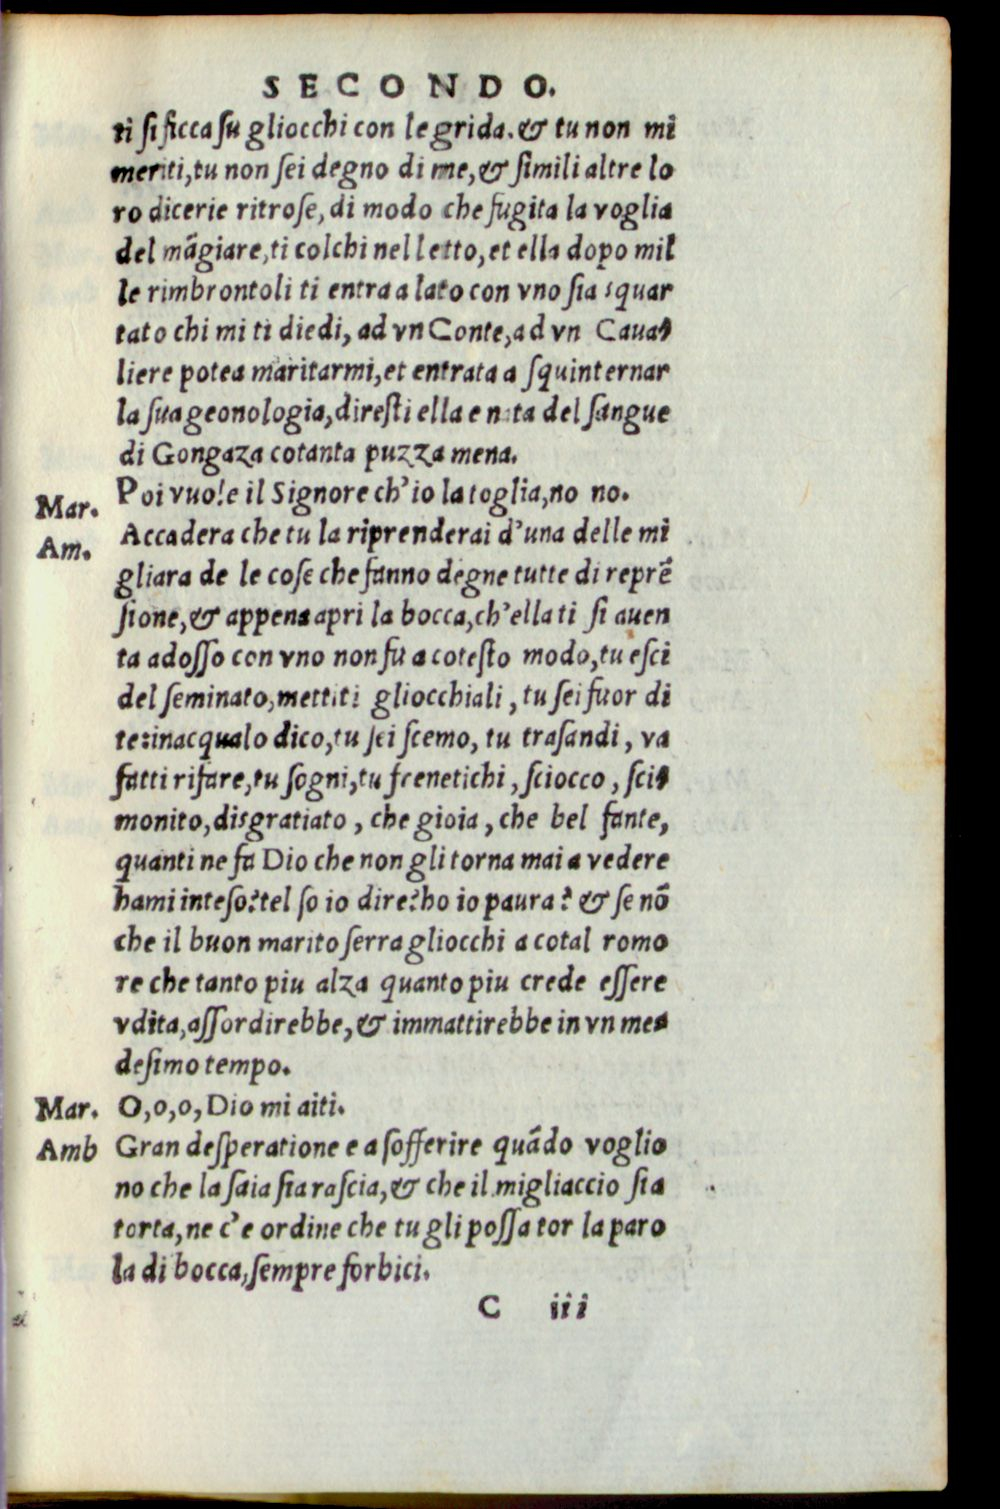 SECONDO.
ti si ficca su gliocchi con le grida. & tu non mi
meriti, tu non sei degno di me, & simili altre lo
ro dicerie ritrose, di modo che fugita la voglia
del mãgiare, ti colchi nel letto, et ella dopo mil
le rimbrontoli ti entra a lato con vno sia squar
tato chi mi ti diedi, ad vn Conte, ad vn Caua-
liere potea maritarmi, et entrata a squinternar
la sua geonologia, diresti ella e nata del sangue
di Gongaza cotanta puzza mena.
Mar. Poi vuole il Signore ch'io la toglia, no no.
Am. Accadera che tu la riprenderai d'una delle mi
gliara de le cose che fanno degne tutte di reprẽ
sione, & appena apri la bocca, ch'ella ti si auen
ta adosso con vno non fu a cotesto modo, tu esci
del seminato, mettiti gliocchiali, tu sei fuor di
te: inacqualo dico, tu sei scemo, tu trasandi, va
fatti rifare, tu sogni, tu frenetichi, sciocco, sci-
monito, disgratiato, che gioia, che bel fante,
quanti ne fa Dio che non gli torna mai a vedere
hami inteso? tel so io dire? ho io paura? & se nõ
che il buon marito serra gliocchi a cotal romo
re che tanto piu alza quanto piu crede essere
vdita, assordirebbe, & immattirebbe in vn me-
desimo tempo.
Mar. O, o, o, Dio mi aiti.
Amb Gran desperatione e a sofferire quãdo voglio
no che la saia sia rascia, & che il migliaccio sia
torta, ne c'e ordine che tu gli possa tor la paro
la di bocca, sempre forbici.
C iii